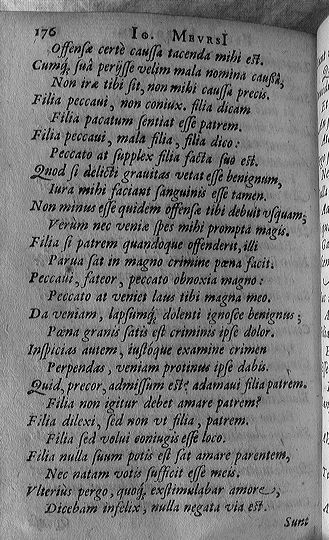 176 IO. MEVRSI
Offensæ certè caussa tacenda mihi est.
Cumq́, suâ perijsse velim mala nomina caussâ,
Non iræ tibi sit, non mihi caussa precis.
Filia peccaui, non coniux. filia dicam
Filia pacatum sentiat esse patrem.
Filia peccaui, mala filia, filia dico:
Peccato at supplex filia facta suo est.
Quod si delicti grauitas vetat esse benignum,
Iura mihi faciant sanguinis esse tamen.
Non minus esse quidem offensæ tibi debuit vsquam;
Verùm nec veniæ spes mihi prompta magis.
Filia si patrem quandoque offenderit, illi
Parua sat in magno crimine pœna facit.
Peccaui, fateor, peccato obnoxia magno:
Peccato at veniet laus tibi magna meo.
Da veniam, lapsumq́, dolenti ignosce benignus;
Pœna granis satis est criminis ipse dolor.
Inspicias autem, iustoque examine crimen
Perpendas, veniam protinus ipse dabis.
Quid, precor, admissum est? adamaui filia patrem.
Filia non igitur debet amare patrem?
Filia dilexi, sed non vt filia, patrem.
Filia sed volui coniugis esse loco.
Filia nulla suum potis est sat amare parentem,
Nec natam votis sufficit esse meis.
Vlterius pergo, quoq́, exstimulabar amore,
Dicebam infelix, nulla negata via est.
Sunt